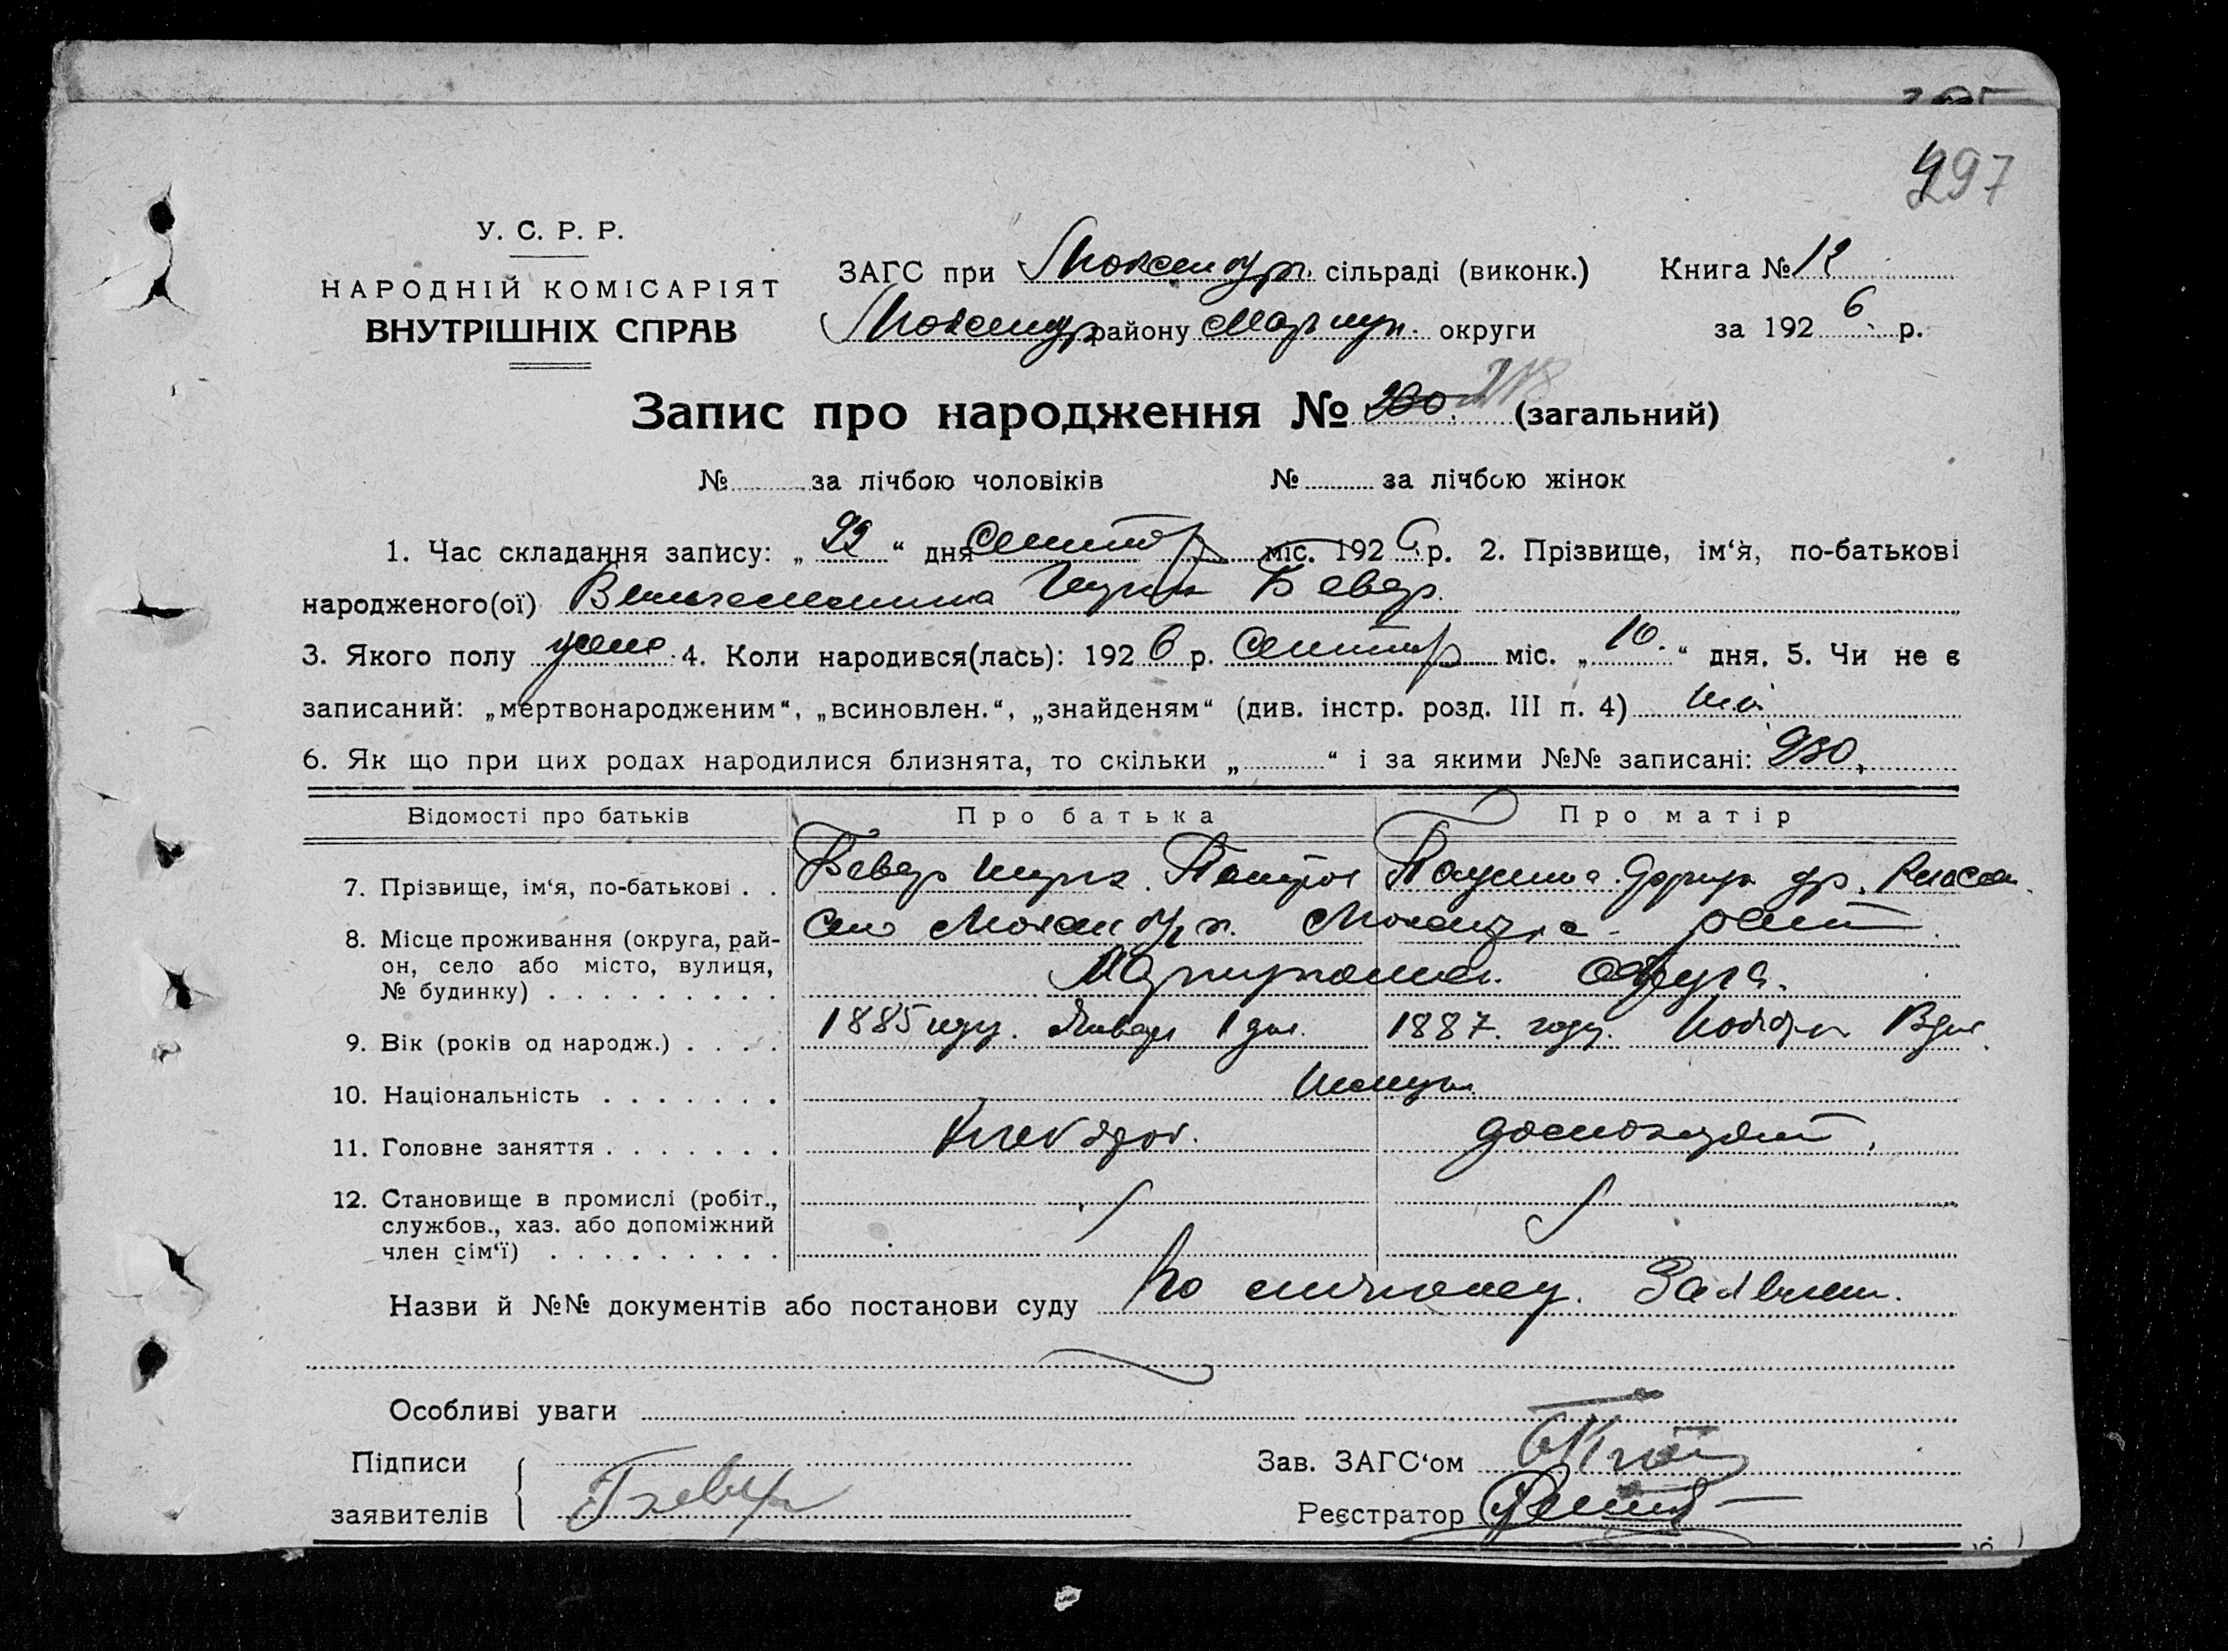 297
У. С. Р. Р.
НАРОДНІЙ КОМІСАРІЯТ
ВНУТРІШНІХ СПРАВ
ЗАГС при сільраді (виконк.) Книга № 12
району Мариуп. округи за 1926 р.
Запис про народження № 230. 218 (загальний)
№ за лічбою чоловіків № за лічбою жінок
1. Час складання запису: „ 22 “ дня Сентяб міс. 1926 р. 2. Прізвище, ім‘я, по-батькові
народженого(ої) Вильгельмина Бевер.
3. Якого полу жен. 4. Коли народився(лась): 1926 р. Сентяб міс. „ 10. “ дня. 5. Чи не є
записаний: „мертвонародженим“, „всиновлен.“, „знайденям“ (див. інстр. розд. III п. 4)
6. Як що при цих родах народилися близнята, то скільки „ “ і за якими №№ записані: 230,
Відомості про батьків Про батька Про матір
7. Прізвище, ім‘я, по-батькові . . Бевер Паулина
8. Місце проживання (округа, рай- село
он, село або місто, вулиця, округа.
№ будинку) . . . . . . . . .
9. Вік (років од народж.) . . . . 1885 году. Января 1 дня. 1887. году. Ноября
10. Національність . . . . . . . Немцы.
11. Головне заняття . . . . . . . Хлебороб. домохозяй
12. Становище в промислі (робіт.,
службов., хаз. або допоміжний
член сім‘ї) . . . . . . . . .
Назви й №№ документів або постанови суду По личному. Заявлен.
Особливі уваги
Підписи Зав. ЗАГС‘ом
заявителів Бевер Реєстратор